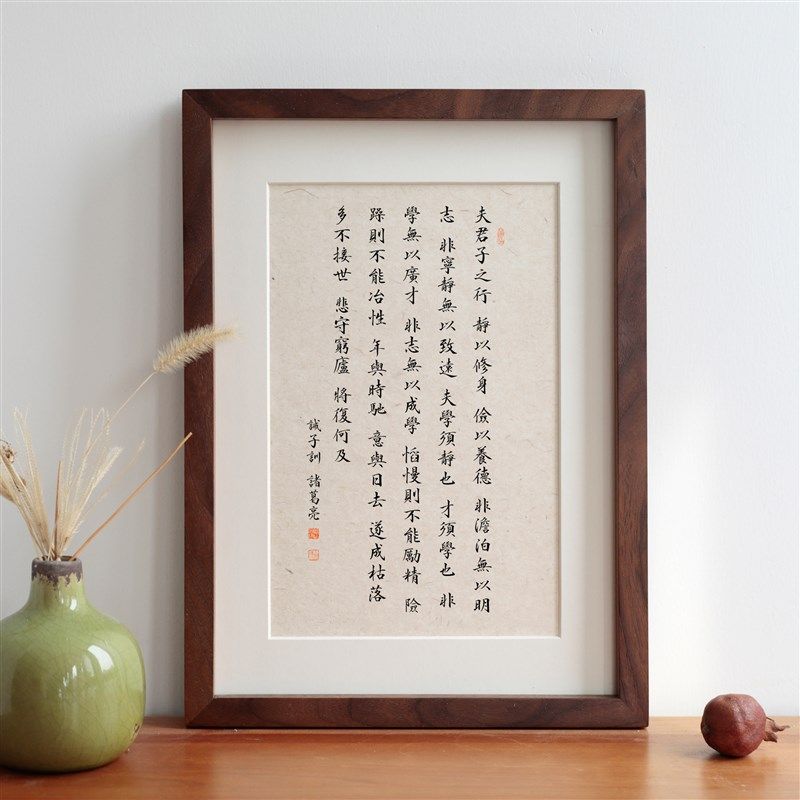 夫君子之行 靜以修身 儉以養德 非澹泊無以明
志 非寧靜無以致遠 夫學須靜也 才須學也 非
學無以廣才 非志無以成學 慆慢則不能勵精 險
躁則不能冶性 年與時馳 意與日去 遂成枯落
多不接世 悲守窮廬 將復何及
誡子訓 諸葛亮